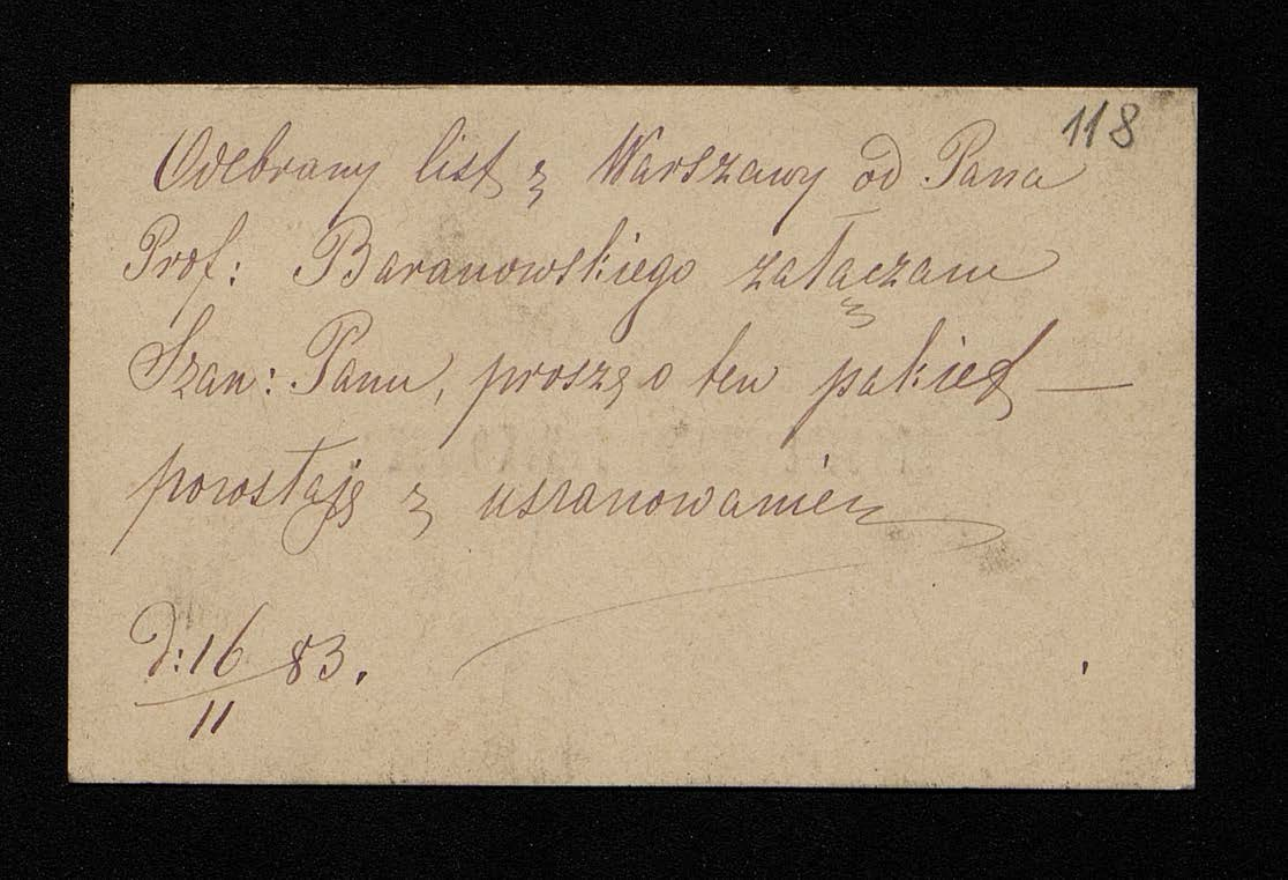 118
Odebrany list z Warszawy od Pana
Prof: Baranowskiego załączam
Szan: Panu, proszę o ten pakiet —
pozostaję z uszanowaniem
d: 16/11 83.